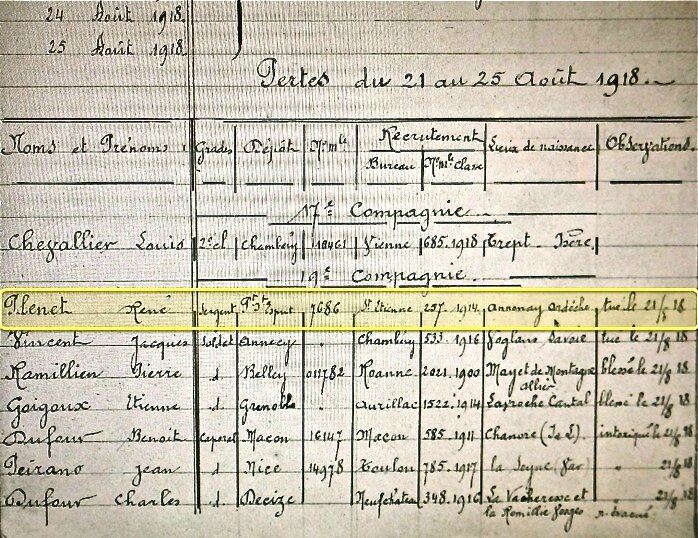 24 Août 1918.
25 Août 1918.
Pertes du 21 au 25 Août 1918.
Noms et Prénoms. Grades Dépôt Nos mle Recrutement Lieux de naissance Observations.
Bureau Nos mle Classe
17e Compagnie
Chevallier Louis 2e cl Chambéry 10461 Vienne 685.1918 Trept. Isère.
19e Compagnie
Plenet René Sergent Pt St Esprit 7686 St Etienne 257.1914 Annonay Ardèche tué le 21/8 18
Vincent Jacques Soldat Annecy . Chambéry 533.1916 Voglans Savoie tué le 21/8 18
Ramillien Pierre d. Belley 011782 Roanne 2021.1900 Mayet de Montagne blessé le 21/8 18
Allier
Goigoux Etienne d. Grenoble . Aurillac 1522.1914 Laroche Cantal blessé le 21/8 18
Dufour Benoit Caporal Macon 16147 Macon 585.1911 Chanore (S. L) intoxiqué le 21/8 18
Peirano Jean d Nice 14978 Toulon 785.1917 la Seyne (Var) " 21/8 18
Dufour Charles d Decize Neufchateau 348.1916 La Vacheresse et " 21/8 18
la Rouillie Vosges n. évacué